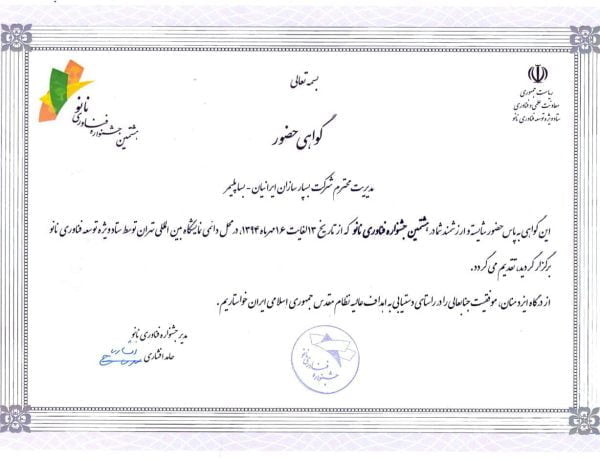 بسمه تعالی
ریاست جمهوری
معاونت علمی و فناوری
ستاد ویژه توسعه فناوری نانو
هشتمین جشنواره فناوری نانو
گواهی حضور
مدیریت محترم شرکت بسپار سازان ایرانیان - بسپاپلیمر
این گواهی به پاس حضور شایسته و ارزشمند شما در هشتمین جشنواره فناوری نانو که از تاریخ ۱۳ لغایت ۱۶ مهرماه ۱۳۹۴، در محل دائمی نمایشگاه بین المللی تهران توسط ستاد ویژه توسعه فناوری نانو
برگزار گردید، تقدیم می گردد.
از درگاه ایزد منان، موفقیت جنابعالی را در راستای دستیابی به اهداف عالیه نظام مقدس جمهوری اسلامی ایران خواستاریم.
مدیر جشنواره فناوری نانو
حامد افشاری
جشنواره فناوری نانو